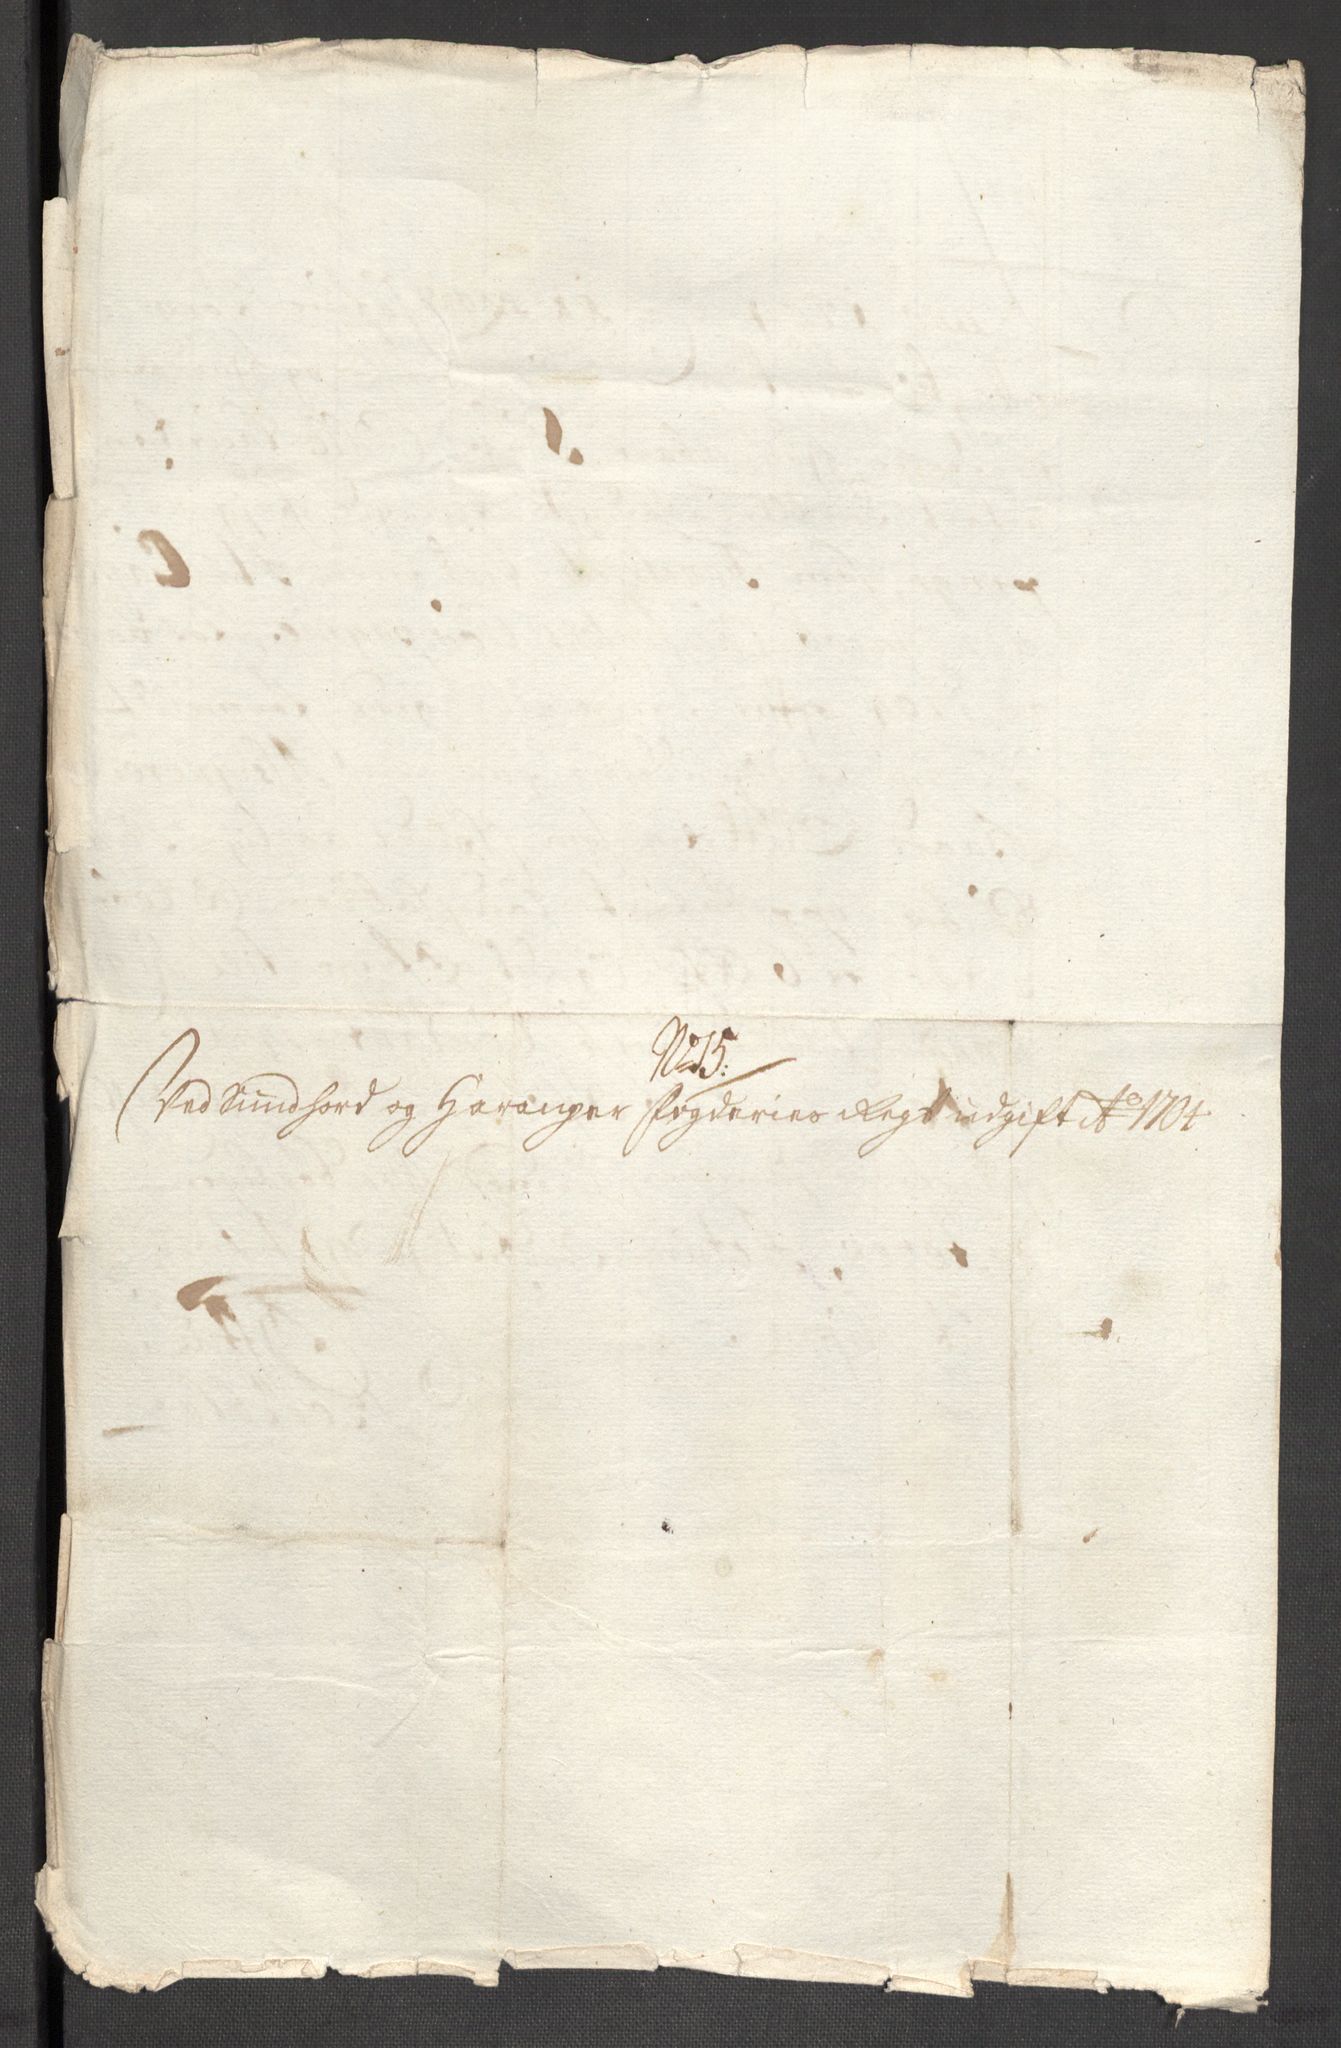 No 15:
Ved Sundhord og Haranger Fogderies Regs udgift Ao 1704